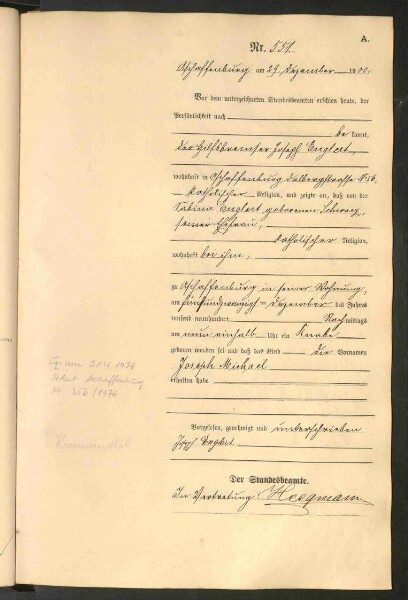 A.
Nr. 551.
Aschaffenburg am 29 Dezember 1900.
Vor dem unterzeichneten Standesbeamten erschien heute, der
Persönlichkeit nach
be kannt,
der Hilfsbremser Joseph Englert,
wohnhaft in Aschaffenburg Dalbergstrasse No 56,
katholischer Religion, und zeigte an, daß von der
Sabina Englert geborenen Schwarz,
seiner Ehefrau,
katholischer Religion,
wohnhaft bei ihm,
zu Aschaffenburg in seiner Wohnung,
am fünfundzwanzig ten Dezember des Jahres
tausend neunhundert Nach mittags
um neun einhalb Uhr ein Knabe
geboren worden sei und daß das Kind die Vornamen
Joseph Michael
erhalten habe
Vorgelesen, genehmigt und unterschrieben
Josef Englert
Der Standesbeamte.
In Vertretung
am 21.11.1976
Aschaffenburg
Nr. 356/1976